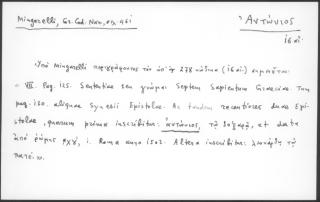 Mingarelli, Gr. Cod. Nan., σελ. 461
Ἀντώνιος
ις αἰ.
Ὑπὸ Mingarelli περιγράφοντος τὸν ὑπ' ἀρ. 278 κώδικα (ις αἰ.) σημειοῦται:
« VII. Pag. 125. Sententiae seu gnomae Septem Sapientum Graeciae. Tum
pag. 130. aliquae Synesii Epistolae. Ac tandem recentiores duae Epi-
stolae, quarum prima inscribitur: ἀντώνιος, τῷ et data
ἀπὸ ῥώμης αφγ, i. Roma anno 1503. Altera inscribitur: λεονάρδῳ τῷ